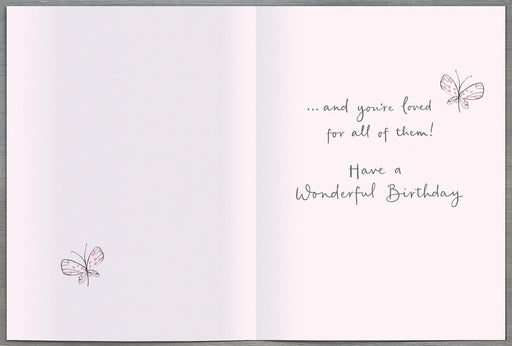 ...and you're loved
for all of them!
Have a
Wonderful Birthday